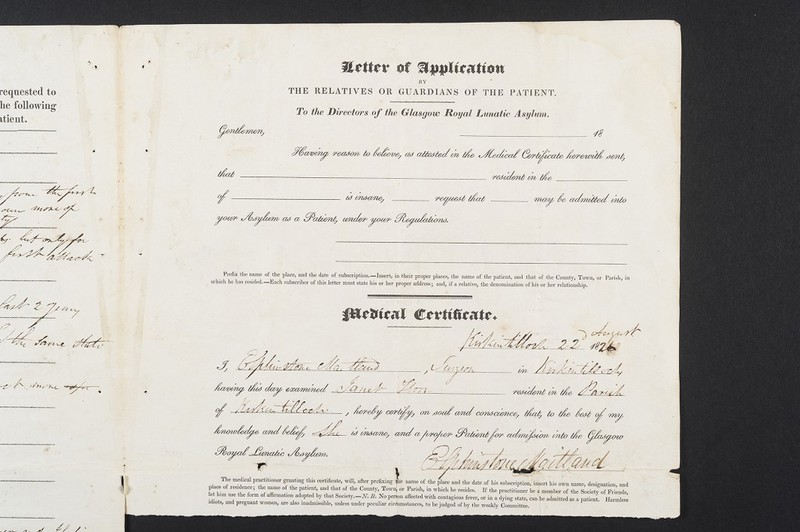 requested to
he following
atient.
from the first
more
but only for
first attack
last 2 years
the same state
Letter of Application
BY
THE RELATIVES OR GUARDIANS OF THE PATIENT.
To the Directors of the Glasgow Royal Lunatic Asylum.
Gentlemen, 18
Having reason to believe, as attested in the Medical Certificate herewith sent,
that resident in the
of is insane, request that may be admitted into
your Asylum as a Patient, under your Regulations.
Prefix the name of the place, and the date of subscription.—Insert, in their proper places, the name of the patient, and that of the County, Town, or Parish, in
which he has resided.—Each subscriber of this letter must state his or her proper address; and, if a relative, the denomination of his or her relationship.
Medical Certificate.
Kirkentilloch 22d August
182
I, Elphinstone Maitland, Surgeon in Kirkentilloch
having this day examined Janet resident in the Parish
of Kirkentilloch, hereby certify, on soul and conscience, that, to the best of my
knowledge and belief, She is insane, and a proper Patient for admission into the Glasgow
Royal Lunatic Asylum.
Elphinstone Maitland
The medical practitioner granting this certificate, will, after prefixing the name of the place and the date of his subscription, insert his own name, designation, and
place of residence; the name of the patient, and that of the County, Town, or Parish, in which he resides. If the practitioner be a member of the Society of Friends,
let him use the form of affirmation adopted by that Society.—N. B. No person affected with contagious fever, or in a dying state, can be admitted as a patient. Harmless
idiots, and pregnant women, are also inadmissible, unless under peculiar circumstances, to be judged of by the weekly Committee.